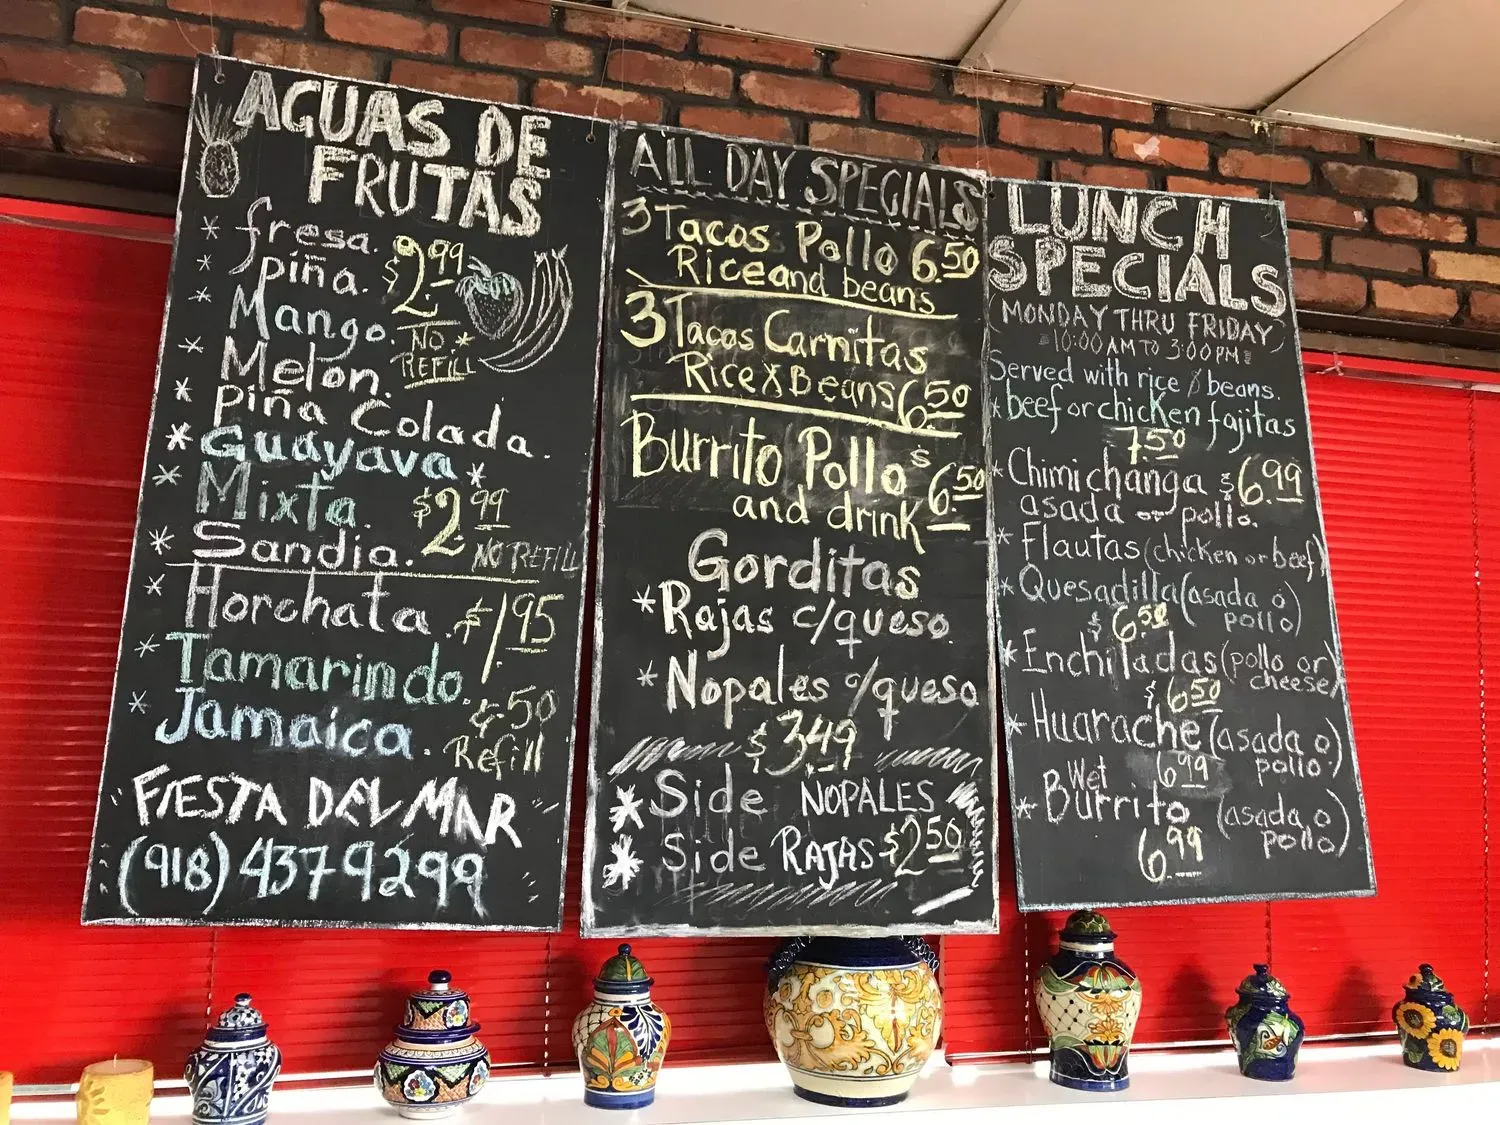 AGUAS DE
FRUTAS
* fresa.
* piña. $2.99
* Mango. NO *
* Melon. REFILL
* piña Colada.
* Guayava *
* Mixta. $2.99
* Sandia. NO REFILL
* Horchata. $1.95
* Tamarindo.
* Jamaica. ¢50
Refill
FIESTA DEL MAR
(918) 437 9299
ALL DAY SPECIALS
3 Tacos Pollo 6.50
Rice and beans
3 Tacos Carnitas
Rice & Beans 6.50
Burrito Pollo $6.50
and drink
Gorditas
* Rajas c/queso
* Nopales c/queso
$3.49
* Side NOPALES
* Side RAJAS $2.50
LUNCH
SPECIALS
(MONDAY THRU FRIDAY)
10:00 AM TO 3:00 PM
Served with rice & beans.
* beef or chicken fajitas
7.50
* Chimichanga $6.99
asada or pollo.
* Flautas (chicken or beef)
* Quesadilla (asada o
pollo)
$6.50
* Enchiladas (pollo or
cheese)
$6.50
* Huarache (asada o
pollo)
6.99
* Wet
Burrito (asada o
pollo)
6.99